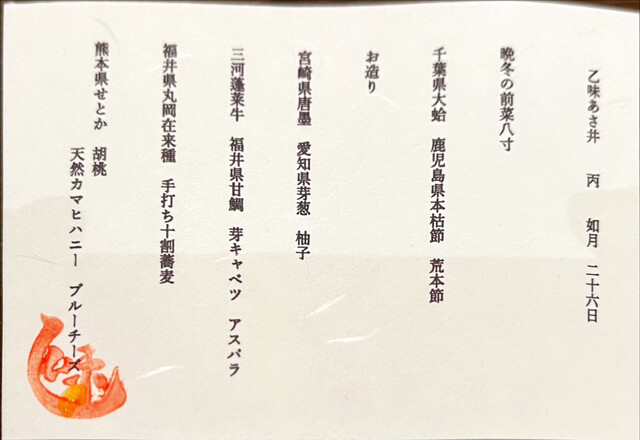 乙味あさ井　丙　如月　二十六日
晩冬の前菜八寸
千葉県大蛤　鹿児島県本枯節　荒本節
お造り
宮崎県唐墨　愛知県芽葱　柚子
三河蓬莱牛　福井県甘鯛　芽キャベツ　アスパラ
福井県丸岡在来種　手打ち十割蕎麦
熊本県せとか　胡桃
天然カマヒハニー　ブルーチーズ